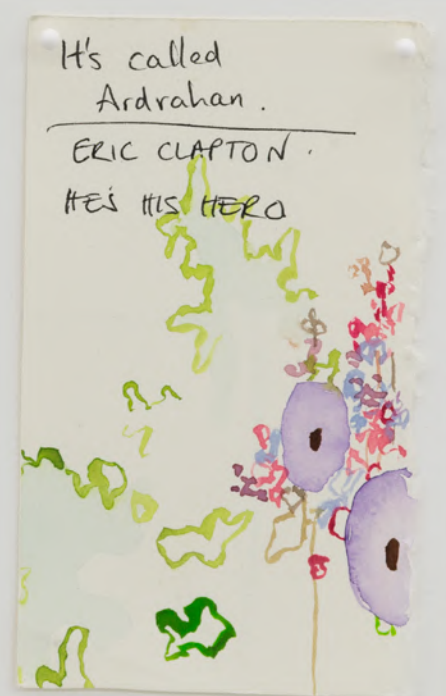 It's called
Ardrahan.
ERIC CLAPTON.
HE'S HIS HERO